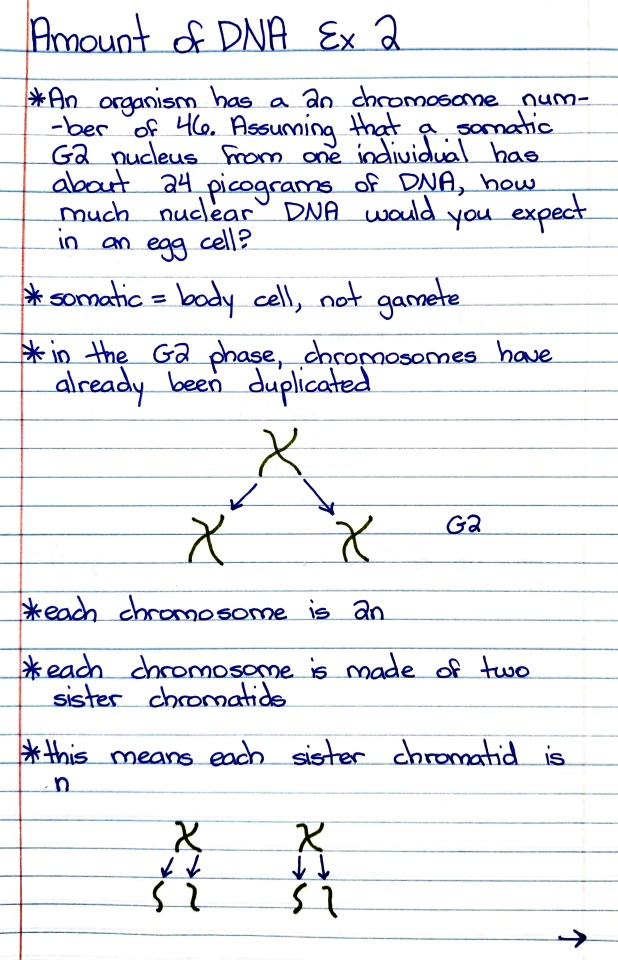 Amount of DNA Ex 2
*An organism has a 2n chromosome num-
-ber of 46. Assuming that a somatic
G2 nucleus from one individual has
about 24 picograms of DNA, how
much nuclear DNA would you expect
in an egg cell?
*somatic = body cell, not gamete
*in the G2 phase, chromosomes have
already been duplicated
G2
*each chromosome is 2n
*each chromosome is made of two
sister chromatids
*this means each sister chromatid is
n